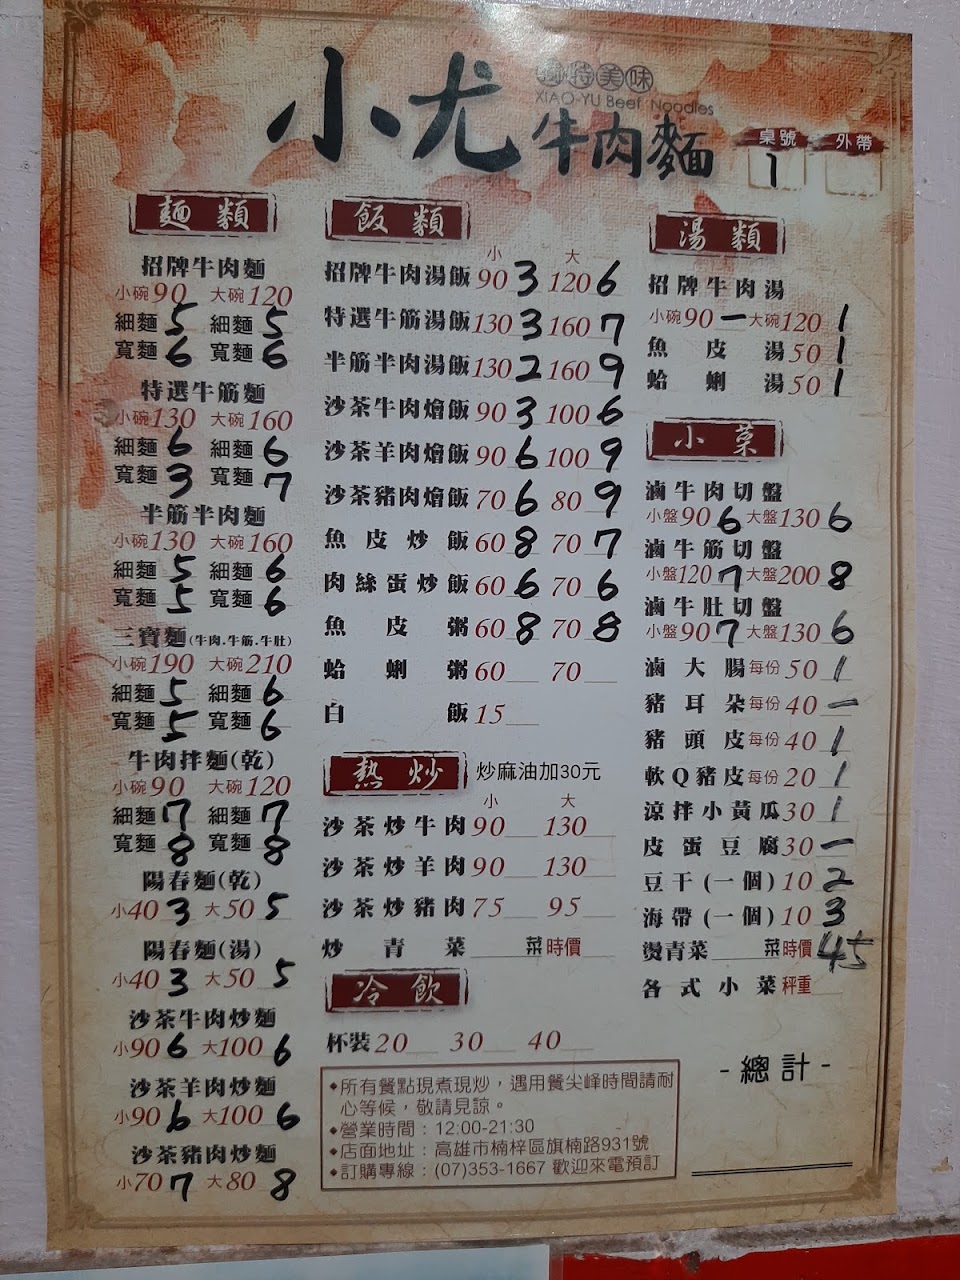 小尤
獨特美味
XIAO-YU Beef Noodles
牛肉麵
桌號 外帶
1
麵類
招牌牛肉麵
小碗90 大碗120
細麵 5 細麵 5
寬麵 6 寬麵 6
特選牛筋麵
小碗130 大碗160
細麵 6 細麵 6
寬麵 3 寬麵 7
半筋半肉麵
小碗130 大碗160
細麵 5 細麵 6
寬麵 5 寬麵 6
三寶麵(牛肉.牛筋.牛肚)
小碗190 大碗210
細麵 5 細麵 6
寬麵 5 寬麵 6
牛肉拌麵(乾)
小碗90 大碗120
細麵 7 細麵 7
寬麵 8 寬麵 8
陽春麵(乾)
小40 3 大50 5
陽春麵(湯)
小40 3 大50 5
沙茶牛肉炒麵
小90 6 大100 6
沙茶羊肉炒麵
小90 6 大100 6
沙茶豬肉炒麵
小70 7 大80 8
飯類
小 大
招牌牛肉湯飯 90 3 120 6
特選牛筋湯飯 130 3 160 7
半筋半肉湯飯 130 2 160 9
沙茶牛肉燴飯 90 3 100 6
沙茶羊肉燴飯 90 6 100 9
沙茶豬肉燴飯 70 6 80 9
魚皮炒飯 60 8 70 7
肉絲蛋炒飯 60 6 70 6
魚皮粥 60 8 70 8
蛤蜊粥 60 70
白飯 15
熱炒 炒麻油加30元
小 大
沙茶炒牛肉 90 130
沙茶炒羊肉 90 130
沙茶炒豬肉 75 95
炒青菜 菜時價
冷飲
杯裝20 30 40
◆所有餐點現煮現炒，遇用餐尖峰時間請耐
心等候，敬請見諒。
◆營業時間：12:00-21:30
◆店面地址：高雄市楠梓區旗楠路931號
◆訂購專線：(07)353-1667 歡迎來電預訂
湯類
招牌牛肉湯
小碗90 一 大碗120 1
魚皮湯 50 1
蛤蜊湯 50 1
小菜
滷牛肉切盤
小盤90 6 大盤130 6
滷牛筋切盤
小盤120 7 大盤200 8
滷牛肚切盤
小盤90 7 大盤130 6
滷大腸 每份50 1
豬耳朵 每份40 一
豬頭皮 每份40 1
軟Q豬皮 每份20 1
涼拌小黃瓜 30 1
皮蛋豆腐 30 一
豆干(一個) 10 2
海帶(一個) 10 3
燙青菜 菜時價 45
各式小菜 秤重
-總計-